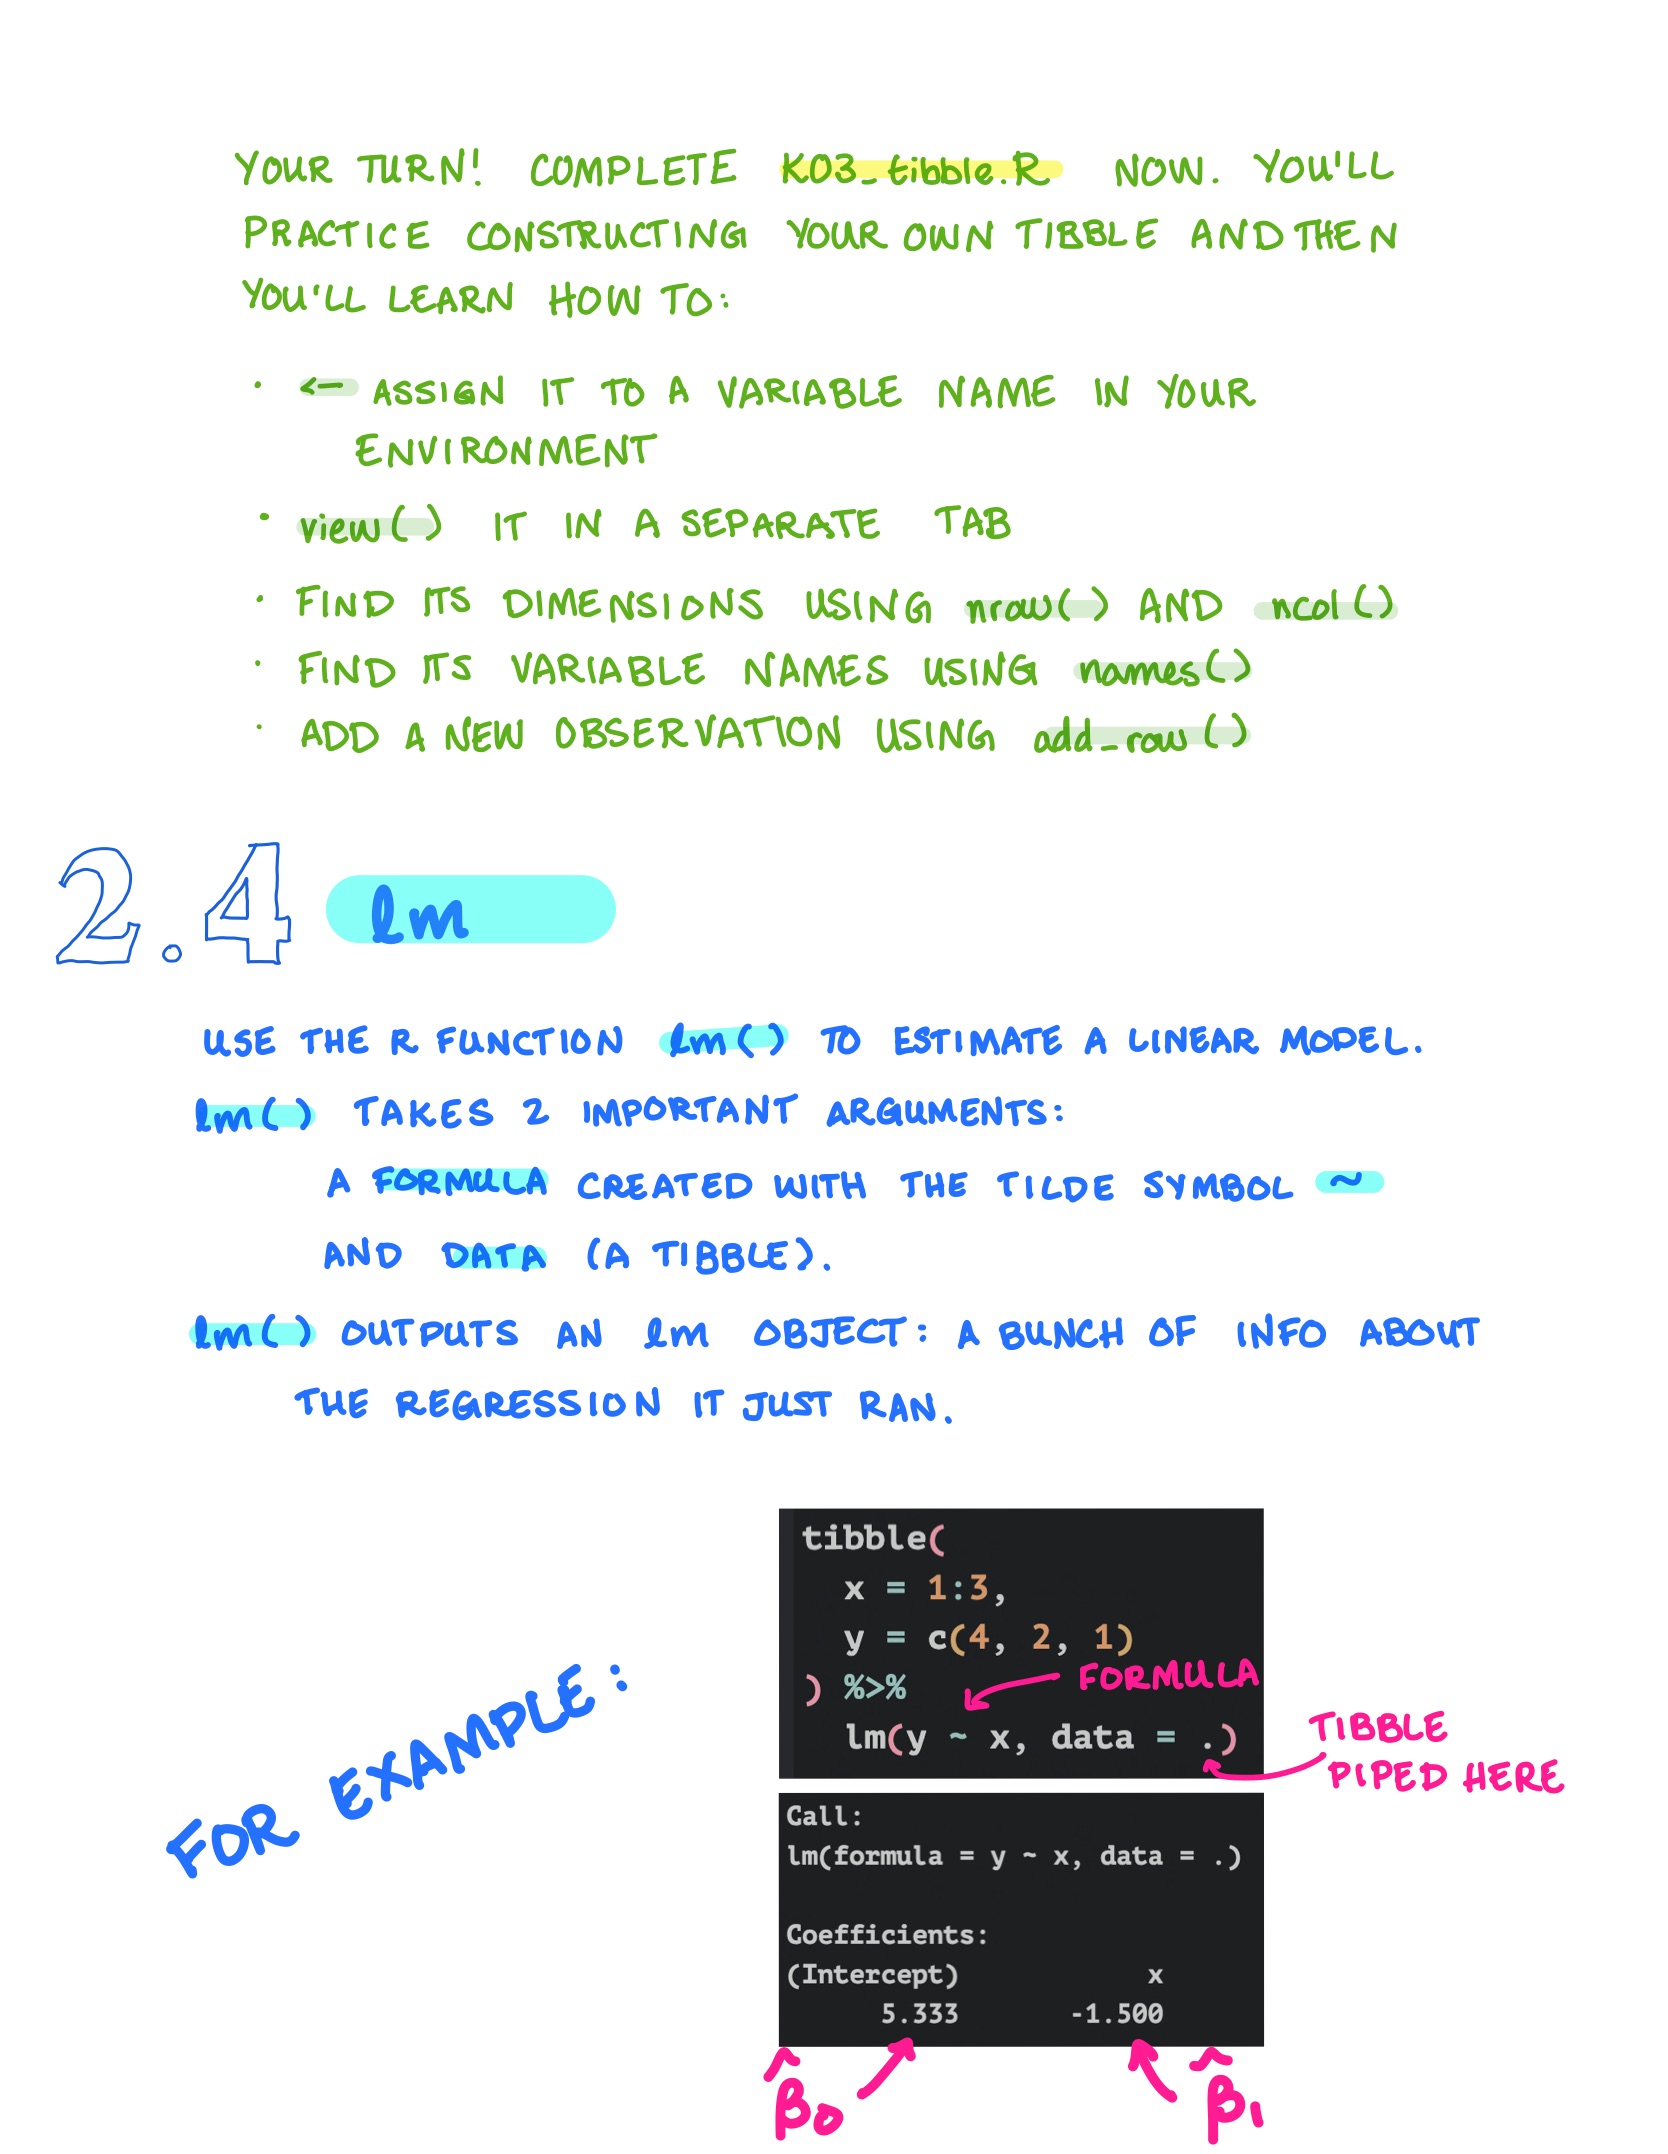 YOUR TURN! COMPLETE K03_tibble.R NOW. YOU'LL
PRACTICE CONSTRUCTING YOUR OWN TIBBLE AND THEN
YOU'LL LEARN HOW TO:
· <- ASSIGN IT TO A VARIABLE NAME IN YOUR
ENVIRONMENT
· view() IT IN A SEPARATE TAB
· FIND ITS DIMENSIONS USING nrow() AND ncol()
· FIND ITS VARIABLE NAMES USING names()
· ADD A NEW OBSERVATION USING add_row()
2.4 lm
USE THE R FUNCTION lm() TO ESTIMATE A LINEAR MODEL.
lm() TAKES 2 IMPORTANT ARGUMENTS:
A FORMULA CREATED WITH THE TILDE SYMBOL ~
AND DATA (A TIBBLE).
lm() OUTPUTS AN lm OBJECT: A BUNCH OF INFO ABOUT
THE REGRESSION IT JUST RAN.
FOR EXAMPLE:
tibble(
x = 1:3,
y = c(4, 2, 1)
) %>%
FORMULA
lm(y ~ x, data = .)
TIBBLE
PIPED HERE
Call:
lm(formula = y ~ x, data = .)
Coefficients:
(Intercept) x
5.333 -1.500
β̂0 β̂1